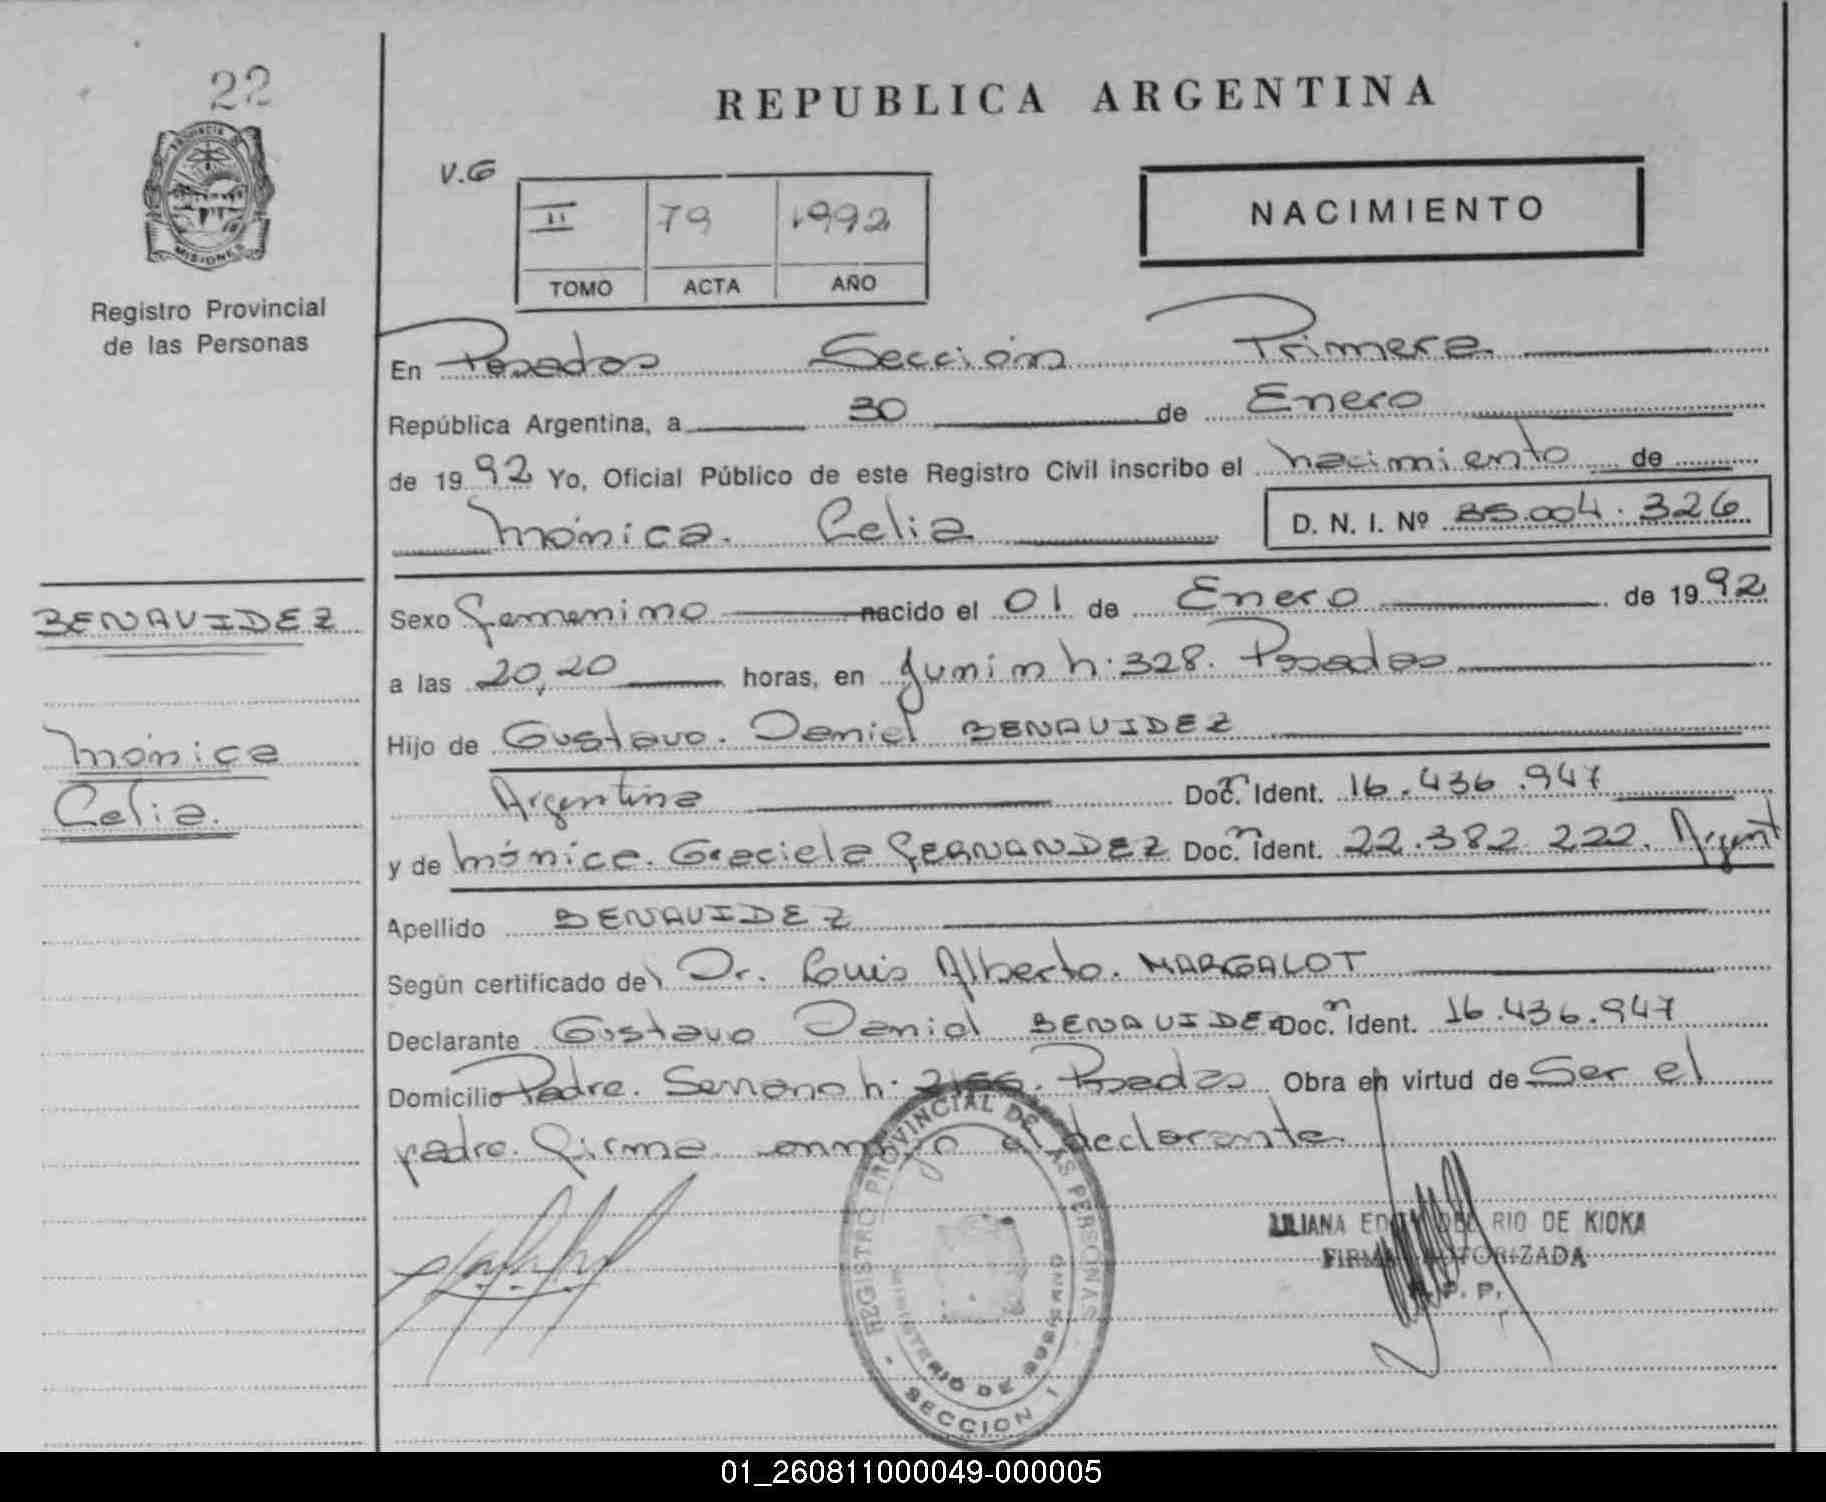 22
PROVINCIA DE
MISIONES
Registro Provincial
de las Personas
BENAVIDEZ
Mónica
Celia.
REPUBLICA ARGENTINA
V.G
II 79 1992
TOMO ACTA AÑO
NACIMIENTO
En Posadas Sección Primera
República Argentina, a 30 de Enero
de 1992 Yo, Oficial Público de este Registro Civil inscribo el nacimiento de
Mónica. Celia D. N. I. Nº 35.004.326
Sexo femenino nacido el 01 de Enero de 1992
a las 20,20 horas, en Junin h: 328. Posadas
Hijo de Gustavo. Daniel BENAVIDEZ
Argentina Doc. n Ident. 16.436.947
y de Mónica. Graciela FERNANDEZ Doc. n Ident. 22.382.222. Argent
Apellido BENAVIDEZ
Según certificado del Dr. Luis Alberto. MARGALOT
Declarante Gustavo Daniel BENAVIDEZ Doc. n Ident. 16.436.947
Domicilio Padre. Serrano h: Posadas Obra en virtud de Ser el
padre. firma el declarante.
REGISTRO PROVINCIAL DE LAS PERSONAS
MINISTERIO DE GOBIERNO
SECCION 1
LILIANA DEL RIO DE KIOKA
FIRMA AUTORIZADA
R. P. P.
01_260811000049-000005